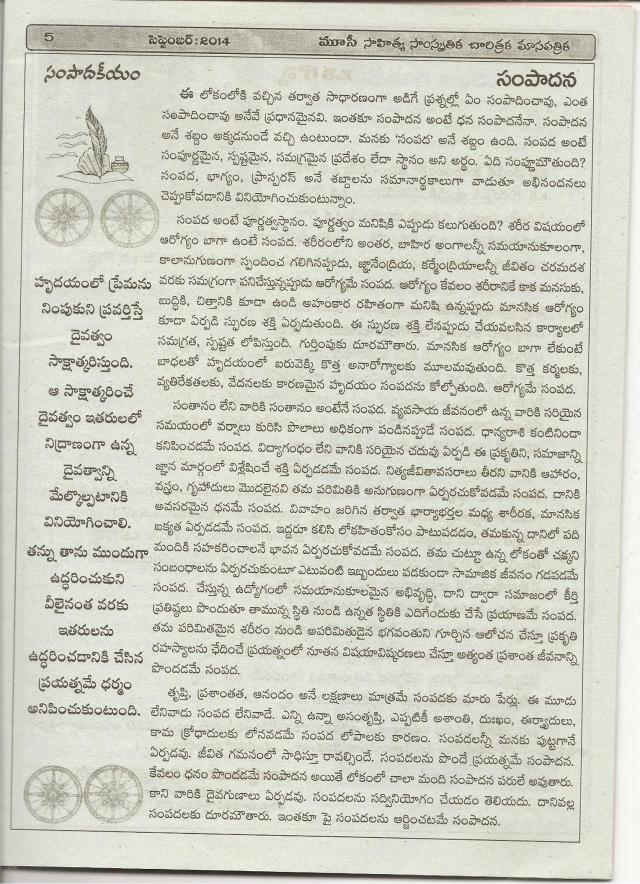 5
సెప్టెంబర్:2014
మూసీ సాహిత్య సాంస్కృతిక చారిత్రక మాసపత్రిక
సంపాదకీయం
సంపాదన
ఈ లోకంలోకి వచ్చిన తర్వాత సాధారణంగా అడిగే ప్రశ్నల్లో ఏం సంపాదించావు, ఎంత
సంపాదించావు అనేవే ప్రధానమైనవి. ఇంతకూ సంపాదన అంటే ధన సంపాదనేనా. సంపాదన
అనే శబ్దం అక్కడనుండే వచ్చి ఉంటుందా. మనకు 'సంపద' అనే శబ్దం ఉంది. సంపద అంటే
సంపూర్ణమైన, స్పష్టమైన, సమగ్రమైన ప్రదేశం లేదా స్థానం అని అర్థం. ఏది సంపూర్ణమౌతుంది?
సంపద, భాగ్యం, ప్రాస్పరస్ అనే శబ్దాలను సమానార్థకాలుగా వాడుతూ అభినందనలు
చెప్పుకోవడానికి వినియోగించుకుంటున్నాం.
సంపద అంటే పూర్ణత్వస్థానం. పూర్ణత్వం మనిషికి ఎప్పుడు కలుగుతుంది? శరీర విషయంలో
ఆరోగ్యం బాగా ఉంటే సంపద. శరీరంలోని అంతర, బాహిర అంగాలన్నీ సమయానుకూలంగా,
కాలానుగుణంగా స్పందించ గలిగినప్పుడు, జ్ఞానేంద్రియ, కర్మేంద్రియాలన్నీ జీవితం చరమదశ
వరకు సమగ్రంగా పనిచేస్తున్నప్పుడు ఆరోగ్యమే సంపద. ఆరోగ్యం కేవలం శరీరానికే కాక మనసుకు,
బుద్ధికి, చిత్తానికి కూడా ఉండి అహంకార రహితంగా మనిషి ఉన్నప్పుడు మానసిక ఆరోగ్యం
కూడా ఏర్పడి స్ఫురణ శక్తి ఏర్పడుతుంది. ఈ స్ఫురణ శక్తి లేనప్పుడు చేయవలసిన కార్యాలలో
సమగ్రత, స్పష్టత లోపిస్తుంది. గుర్తింపుకు దూరమౌతారు. మానసిక ఆరోగ్యం బాగా లేకుంటే
బాధలతో హృదయంలో బరువెక్కి కొత్త అనారోగ్యాలకు మూలమవుతుంది. కొత్త కర్మలకు,
వ్యతిరేకతలకు, వేదనలకు కారణమైన హృదయం సంపదను కోల్పోతుంది. ఆరోగ్యమే సంపద.
సంతానం లేని వారికి సంతానం అంటేనే సంపద. వ్యవసాయ జీవనంలో ఉన్న వారికి సరియైన
సమయంలో వర్షాలు కురిసి పొలాలు అధికంగా పండినప్పుడే సంపద. ధాన్యరాశి కంటినిండా
కనిపించడమే సంపద. విద్యాగంధం లేని వానికి సరియైన చదువు ఏర్పడి ఈ ప్రకృతిని, సమాజాన్ని
జ్ఞాన మార్గంలో విశ్లేషించే శక్తి ఏర్పడడమే సంపద. నిత్యజీవితావసరాలు తీరని వానికి ఆహారం,
వస్త్రం, గృహాదులు మొదలైనవి తమ పరిమితికి అనుగుణంగా ఏర్పరచుకోవడమే సంపద. దానికి
అవసరమైన ధనమే సంపద. వివాహం జరిగిన తర్వాత భార్యాభర్తల మధ్య శారీరక, మానసిక
ఐక్యత ఏర్పడడమే సంపద. ఇద్దరూ కలిసి లోకహితంకోసం పాటుపడడం, తమకున్న దానిలో పది
మందికి సహకరించాలనే భావన ఏర్పరచుకోవడమే సంపద. తమ చుట్టూ ఉన్న లోకంతో చక్కని
సంబంధాలను ఏర్పరచుకుంటూ ఎటువంటి ఇబ్బందులు పడకుండా సామాజిక జీవనం గడపడమే
సంపద. చేస్తున్న ఉద్యోగంలో సమయానుకూలమైన అభివృద్ధి, దాని ద్వారా సమాజంలో కీర్తి
ప్రతిష్ఠలు పొందుతూ తామున్న స్థితి నుండి ఉన్నత స్థితికి ఎదిగేందుకు చేసే ప్రయాణమే సంపద.
తమ పరిమితమైన శరీరం నుండి అపరిమితుడైన భగవంతుని గూర్చిన ఆలోచన చేస్తూ ప్రకృతి
రహస్యాలను ఛేదించే ప్రయత్నంలో నూతన విషయావిష్కరణలు చేస్తూ అత్యంత ప్రశాంత జీవనాన్ని
పొందడమే సంపద.
తృప్తి, ప్రశాంతత, ఆనందం అనే లక్షణాలు మాత్రమే సంపదకు మారు పేర్లు. ఈ మూడు
లేనివాడు సంపద లేనివాడే. ఎన్ని ఉన్నా అసంతృప్తి, ఎప్పటికీ అశాంతి, దుఃఖం, ఈర్ష్యాదులు,
కామ క్రోధాదులకు లోనవడమే సంపద లోపాలకు కారణం. సంపదలన్నీ మనకు పుట్టగానే
ఏర్పడవు. జీవిత గమనంలో సాధిస్తూ రావల్సిందే. సంపదలను పొందే ప్రయత్నమే సంపాదన.
కేవలం ధనం పొందడమే సంపాదన అయితే లోకంలో చాలా మంది సంపాదన పరులే అవుతారు.
కాని వారికి దైవగుణాలు ఏర్పడవు. సంపదలను సద్వినియోగం చేయడం తెలియదు. దానివల్ల
సంపదలకు దూరమౌతారు. ఇంతకూ పై సంపదలను ఆర్జించటమే సంపాదన.
హృదయంలో ప్రేమను
నింపుకుని ప్రవర్తిస్తే
దైవత్వం
సాక్షాత్కరిస్తుంది.
ఆ సాక్షాత్కరించే
దైవత్వం ఇతరులలో
నిద్రాణంగా ఉన్న
దైవత్వాన్ని
మేల్కొల్పటానికి
వినియోగించాలి.
తన్ను తాను ముందుగా
ఉద్ధరించుకుని
వీలైనంత వరకు
ఇతరులను
ఉద్ధరించడానికి చేసిన
ప్రయత్నమే ధర్మం
అనిపించుకుంటుంది.